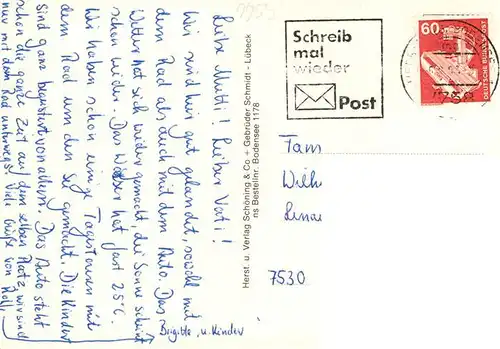 Liebe Mutti! Lieber Vati!
Wir sind hier gut gelandet, sowohl mit
dem Rad als auch mit dem Auto. Das
Wetter hat sich wieder gemacht, die Sonne scheint
schon wieder. Das Wasser hat fast 25°C.
Wir haben schon einige Tagestouren mit
dem Rad um den See gemacht. Die Kinder
sind ganz begeistert von allem. Das Auto steht
schon die ganze Zeit auf dem selben Platz, wir sind
nur mit dem Rad unterwegs! Viele Grüße von
Brigitte, u. Kinder
Herst. u. Verlag Schöning & Co + Gebrüder Schmidt - Lübeck
ns Bestellnr. Bodensee 1178
Schreib
mal
wieder
Post
60
DEUTSCHE BUNDESPOST
Fam
Wilh
7530